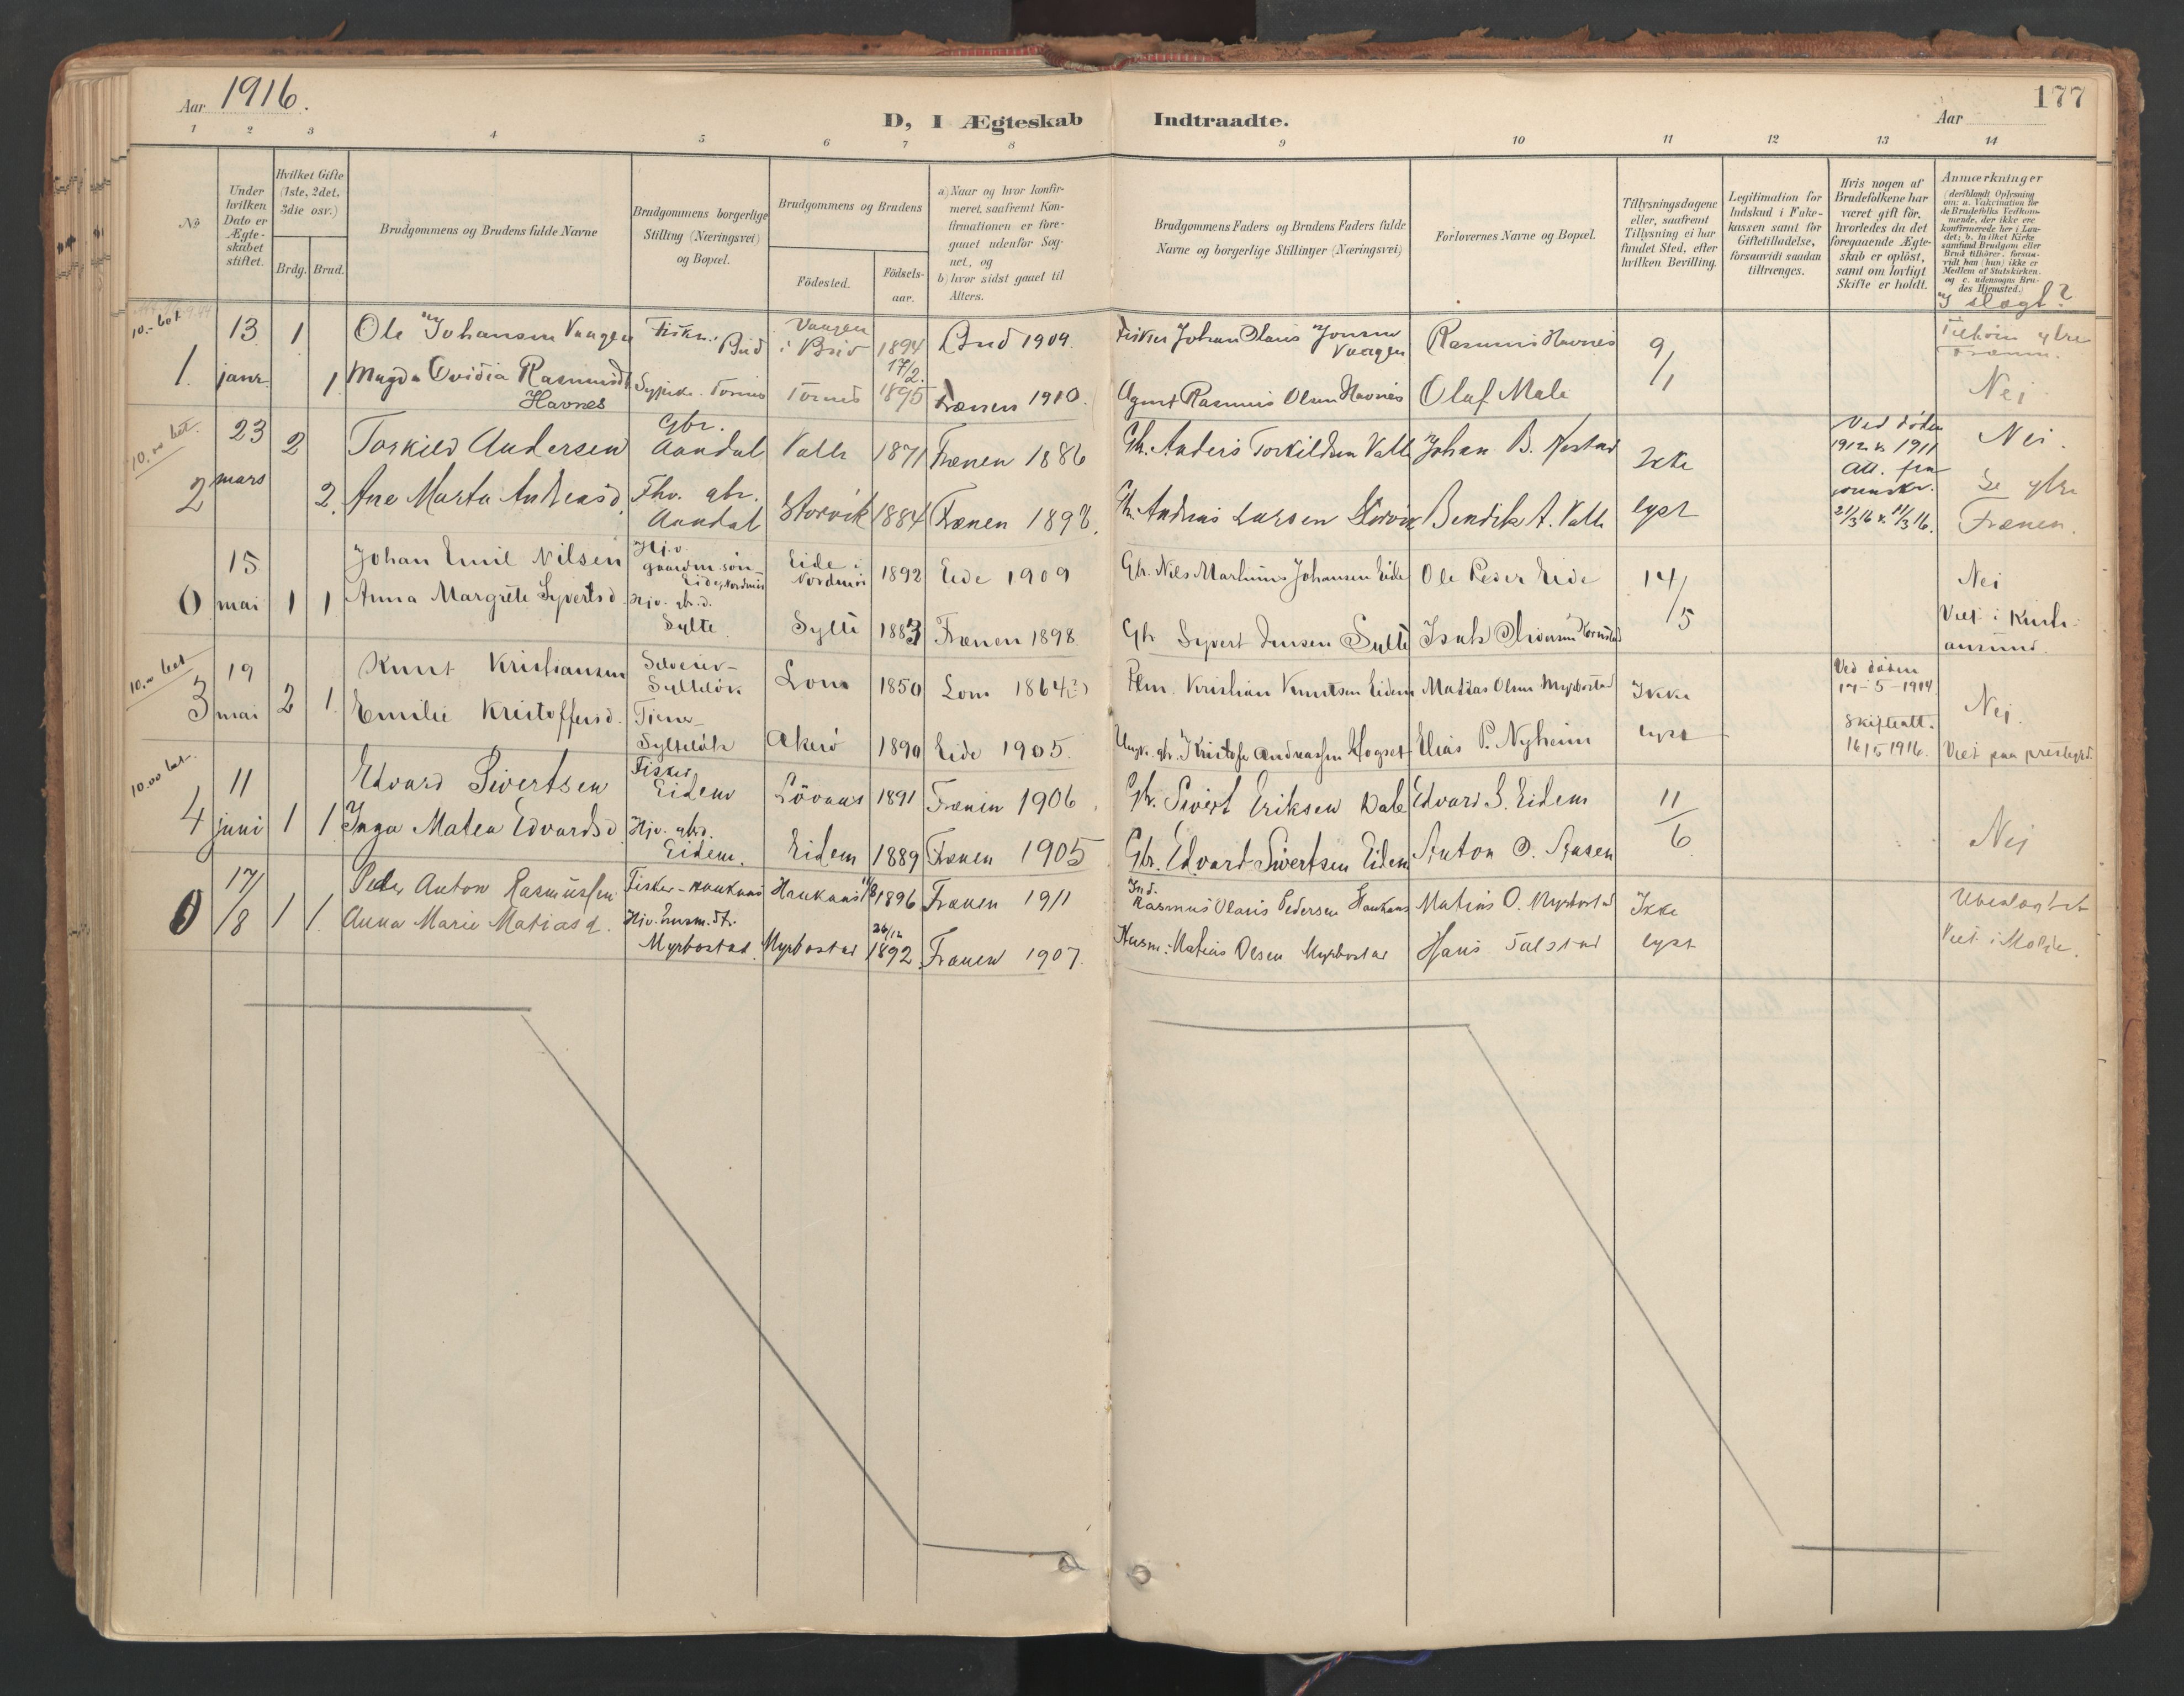 Aar 1916.
D, I Ægteskab Indtraadte.
Aar
177
1 2 3 4 5 6 7 8 9 10 11 12 13 14
No
Under hvilken Dato er Ægteskabet stiftet.
Hvilket Gifte (1ste, 2det, 3die osv.)
Brdg. Brud.
Brudgommens og Brudens fulde Navne
Brudgommens borgerlige Stilling (Næringsvei) og Bopæl.
Brudgommens og Brudens
Födested.
Födsels-aar.
a) Naar og hvor konfir-
meret, saafremt Kon-
firmationen er fore-
gaaet udenfor Sog-
net, og
b) hvor sidst gaaet til
Alters.
Brudgommens Faders og Brudens Faders fulde
Navne og borgerlige Stillinger (Næringsvei)
Forlovernes Navne og Bopæl.
Tillysningsdagene
eller, saafremt
Tillysning ei har
fundet Sted, efter
hvilken Bevilling.
Legitimation for
Indskud i Enke-
kassen samt for
Giftetilladelse,
forsaavidt saadan
tiltrænges.
Hvis nogen af
Brudefolkene har
været gift för,
hvorledes da det
foregaaende Ægte-
skab er oplöst,
samt om lovligt
Skifte er holdt.
Anmærkninger
(deriblandt Oplysning
om: a. Vakcination for
de Brudefolks Vedkom-
mende, der ikke ere
konfirmerede her i Lan-
det; b. hvilket Kirke-
samfund Brudgom eller
Brud tilhörer, forsaa-
vidt han (hun) ikke er
Medlem af Statskirken.
og c. udensogns Bru-
des Hjemsted.)
I slægt?
10.- bet.
1. 13 janr. 1 Ole Johansen Vaagen Fisker. Bud Vaagen i Bud 1894 Bud 1909. Fisker Johan Olaus Jonsen Vaagen Rasmus Havnes 9/1 Tilhöin ytre Frænen.
1 Magda Ovidia Rasmusdt Havnes Sypike. Tornes Tornes 17/2. 1895 Frænen 1910. Agent Rasmus Olsen Havnes Olaf Male Nej
10.00 bet.
2 23 mars 2 Torkild Andersen Gbr. Aandal Valle 1871 Frænen 1886 Gbr. Anders Torkildsen Valle Johan B. Ikke Ved döden 1912 & 1911 att. fra Nei.
2. Ane Marta Andreasd. Fhv. gbr. Aandal Storvik 1884 Frænen 1898. Gbr. Andreas Larsen Storvik Bendik A. Valle lyst 21/3 16 & 11/3 16. Se ytre Frænen.
0 15 mai 1 1 Johan Emil Nilsen Hj.v. gaardm.sön Eide, Nordmör Eide i Nordmör 1892 Eide 1909 Gbr. Nils Martinus Johansen Eide Ole Peder Eide 14/5 Nei
Anna Margrete Syvertsd. Hjv. gbr.d. Sylte Sylte 1883 Frænen 1898 Gbr. Syvert Jensen Sylte Isak Viet i Kristiansund.
10.00 bet
3 19 mai 2 1. Knut Kristiansen Selveier- Syltelök Lom 1850 Lom 1864(?) Plm. Kristian Knutsen Eidem Matias Olsen Myrbostad Ikke Ved döden 17-5-1914 Nej.
Emilie Kristoffersd. Tjener- Syltelök Akerö 1890 Eide 1905. Ungk. gbr. Kristofer Andreassen Hogset Elias P. Nyheim lyst Skifteatt. 16/5 1916. Viet paa prestegrd.
10.00 bet.
4 11 juni 1 1 Edvard Sivertsen Fisker Eidem Lövaas 1891 Frænen 1906. Gbr. Sivert Eriksen Dale Edvard S. Eidem 11/6
Inga Matea Edvardsd. Hjv. gbrd. Eidem. Eidem 1889 Frænen 1905 Gbr. Edvard Sivertsen Eidem Anton O. Aasen Nej
0 17/8 1 1. Peder Anton Rasmussen Fisker - Haukaas Haukaas 11/8 1896 Frænen 1911 Ind. Rasmus Olaus Pedersen Haukaas Matias O. Myrbostad Ikke Ubeslægtet
Anna Marie Matiasd. Hjv. husm.dt. Myrbostad. Myrbostad 24/12 1892 Frænen 1907. Husm. Matias Olsen Myrbostad Hans Talstad lyst Viet i Molde.